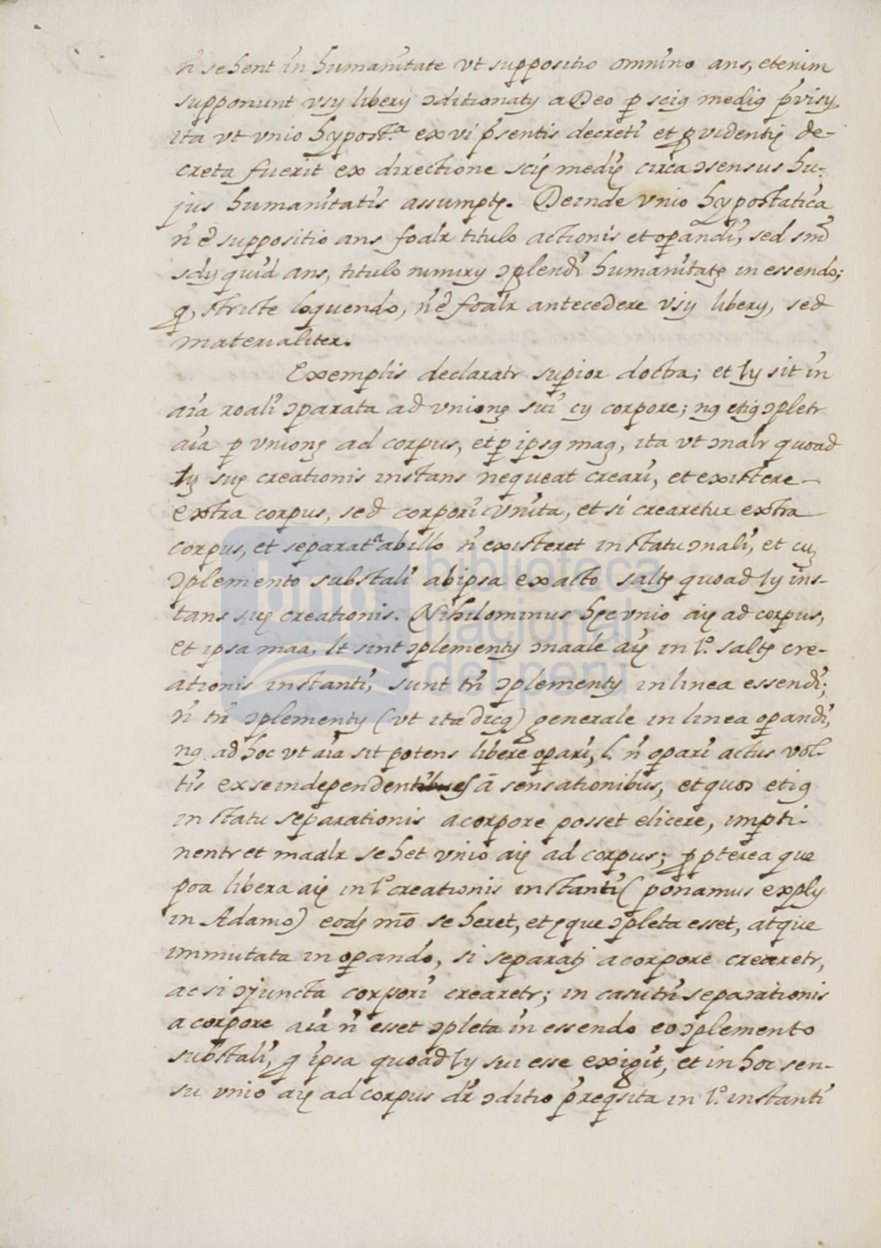 n̄ se hent in humanitate vt suppositio omnino ans, etenim
supponunt vsų libeų ɔditionatų a Deo p̱ sciȩ mediȩ p̄visų,
ita vt vnio hypost.ª ex vi p̄sentis decreti et ꝓvidentiȩ de-
creta fuerit ex directione sciȩ mediȩ circa ɔsensus hu-
jus humanitatis assumptȩ. Deinde vnio hypostatica
n̄ ē suppositio ans foalr titulo actionis et operandi, sed sm̄
sdų quid ans, titulo nimirų ɔplendi humanitatȩ in essendo;
q̄, stricte loquendo, n̄ ē foalr antecedere vsų liberų, sed
materialiter.
Exemplis declaratr supior doctra; et Ių sit in
aīa roali ɔparata ad vnionȩ sui cų corpore; nȩ etiȩ ɔpletr
aīa p̱ vnionȩ ad corpus, et p̱ ipsȩ maȩ, ita vt ɔnalr quoad
Ių suȩ creationis instans nequeat creari, et existere
extra corpus, sed corpori vnita, et si crearetur extra
corpus, et separatª ab illo n̄ existeret in statu ɔnali, et cų
ɔplemento substali ab ipsa exacto saltȩ quoad Ių ins-
tans suȩ creationis. Nihilominus hȩc vnio aiȩ ad corpus,
et ipsa maa, lt sint ɔplementų ɔnaale aiȩ in I.º saltȩ cre-
ationis instanti, sunt tn̄ ɔplementų in linea essendi;
n̄ tn̄ ɔplementų (vt ita dicȩ) generale in linea operandi,
nȩ ad hoc vt aīa sit potens libere operari, l. n̄ operari actus vol-
tis ex se independentes ā sensationibus, et quos etiȩ
in statu separationis a corpore posset elicere, imp̱ti-
nentr et maalr se het vnio aiȩ ad corpus; ꝓpterea que
poa libera aiȩ in I.º creationis instanti (ponamus explų
in Adamo) eodȩ mō se heret, et ȩque ɔpleta esset, atque
immutata in operando, si separatȩ a corpore crearetr,
ac si ɔjuncta corpori crearetr; in casu tn̄ separationis
a corpore aīa n̄ esset ɔpleta in essendo eo ɔplemento
substali, q̄ ipsa quoad Ių sui esse exigit, et in hoc sen-
su vnio aiȩ ad corpus dr̄ ɔditio p̄reqsita in I.º instanti